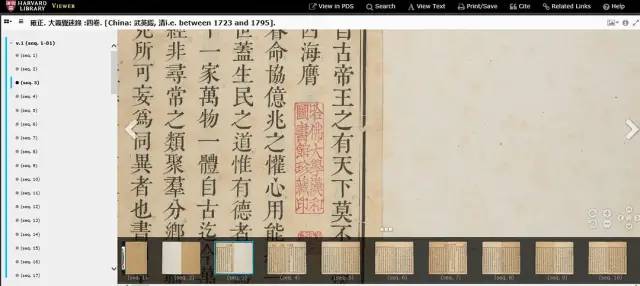 HARVARD LIBRARY VIEWER
View in PDS
Search
View Text
Print/Save
Cite
Related Links
Help
雍正, 大義覺迷錄 :四卷. [China: 武英殿, 清i.e. between 1723 and 1795].
v.1 (seq. 1-81)
(seq. 1)
(seq. 2)
(seq. 3)
(seq. 4)
(seq. 5)
(seq. 6)
(seq. 7)
(seq. 8)
(seq. 9)
(seq. 10)
(seq. 11)
(seq. 12)
(seq. 13)
(seq. 14)
(seq. 15)
(seq. 16)
(seq. 17)
自古帝王之有天下莫不
四海膺
哈佛大學漢和
圖書館珍藏印
眷命協億兆之懽心用能
世蓋生民之道惟有德者
下一家萬物一體自古迄今
經非尋常之類聚羣分鄉
見所可妄爲同異者也書
(seq. 1)
(seq. 2)
(seq. 3)
(seq. 4)
(seq. 5)
(seq. 6)
(seq. 7)
(seq. 8)
(seq. 9)
(seq. 10)